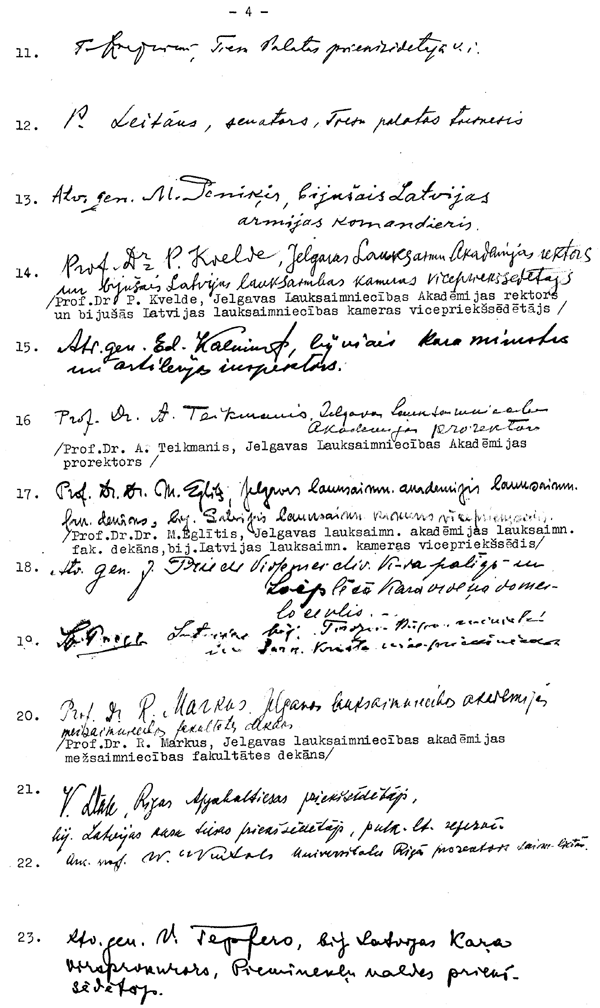 - 4 -
11. T. Palātas v.i.
12. P. Leitāns, senators, palatas
13. Atv. gen. M. Peniķis, bijušais Latvijas
armijas komandieris.
14. Prof. Dr. P. Kvelde, Jelgavas Akadēmijas rektors
un bijušais Latvijas lauksaimniecības kameras vicepriekšsēdētājs
/Prof.Dr P. Kvelde, Jelgavas Lauksaimniecības Akadēmijas rektors
un bijušās Latvijas lauksaimniecības kameras vicepriekšsēdētājs /
15. Atv. gen. Ed. Kalniņš, bijušais kara ministrs
un artilērijas inspektors.
16 Prof. Dr. A. Teikmanis, Jelgavas
Akadēmijas prorektors
/Prof.Dr. A. Teikmanis, Jelgavas Lauksaimniecības Akadēmijas
prorektors /
17. Prof. Dr. Dr. M. Eglītis, Jelgavas lauksaimn. akadēmijas lauksaimn.
fak. dekāns, bij. Latvijas lauksaimn. kameras
/Prof.Dr.Dr. M.Eglītis, Jelgavas lauksaimn. akadēmijas lauksaimn.
fak. dekāns,bij.Latvijas lauksaimn. kameras vicepriekšsēdis/
18. Atv. gen. J. div. k-ra palīgs un
Kara
loceklis
19. Latvijas bij.
un Sark. Krusta
20. Prof. Dr R. Markus. Jelgavas lauksaimniecības akadēmijas
mežsaimniecības fakultātes dekāns
/Prof.Dr. R. Markus, Jelgavas lauksaimniecības akadēmijas
mežsaimniecības fakultātes dekāns/
21. V. Rīgas Apgabaltiesas priekšsēdētājs,
bij. Latvijas kara tiesas priekšsēdētājs, pulk. lt.
22. Universitātes Rīgā prorektors
23. Atv. gen. V. Tepfers, bij. Latvijas Kaŗa
virsprokurors, Pieminekļu valdes priekš-
sēdētājs.